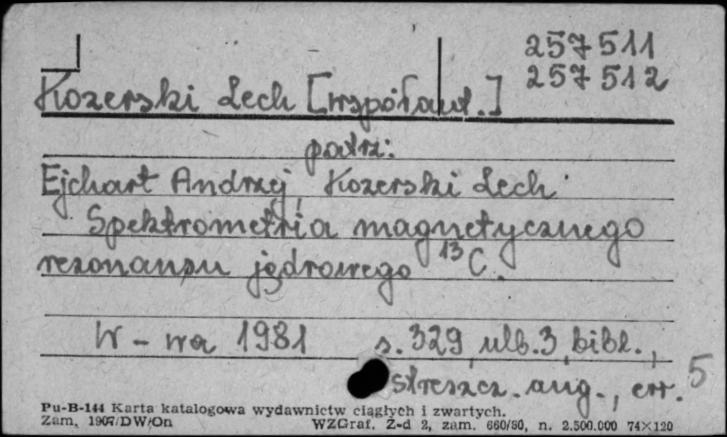 257511
257512
Kozerski Lech [współaut.]
patrz:
Ejchart Andrzej, Kozerski Lech
Spektrometria magnetycznego
rezonansu jądrowego ¹³C.
W-wa 1981 s. 329, ulb. 3, bibl.,
streszcz. ang., err. 5
Pu-B-144 Karta katalogowa wydawnictw ciągłych i zwartych.
Zam. 1907/DW/On WZGraf. Z-d 2, zam. 660/80, n. 2.500.000 74×120